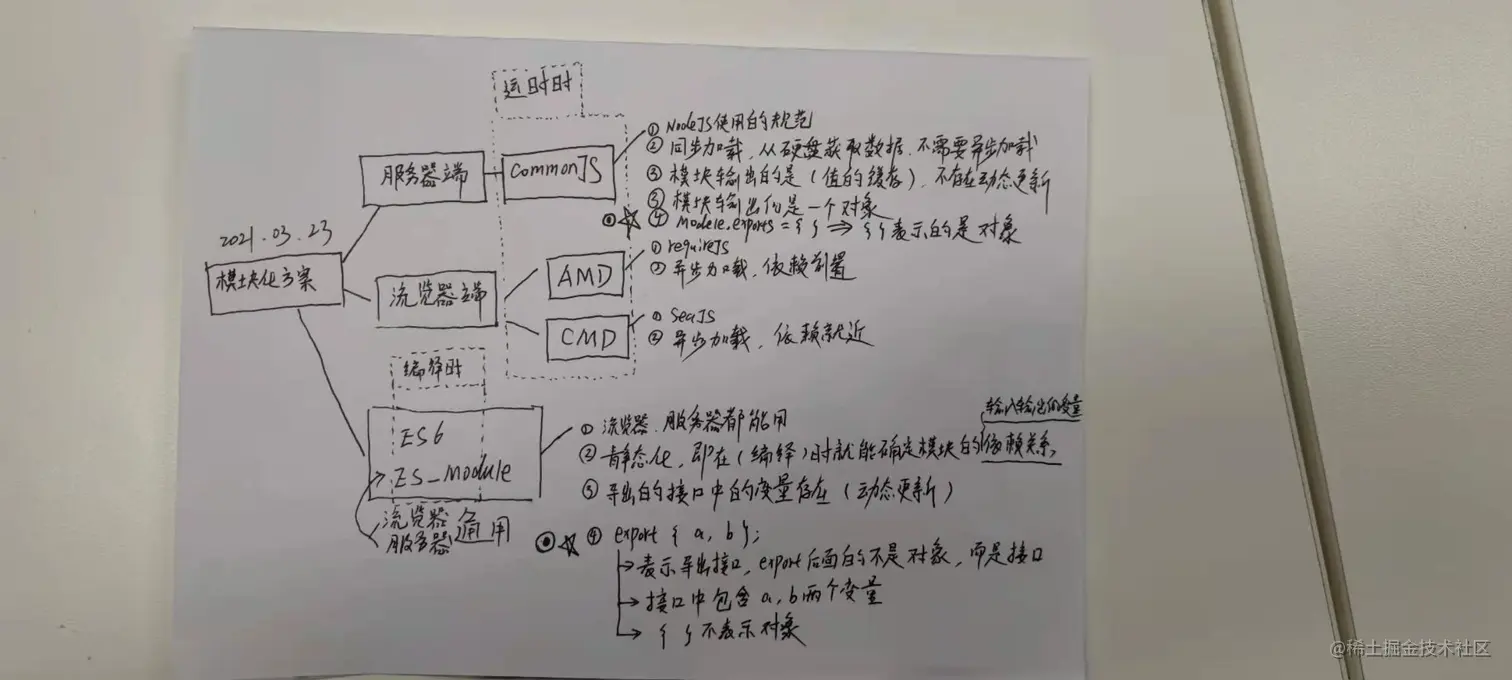 2021.03.23
模块化方案
服务器端
运时时
CommonJS
① NodeJS使用的规范
② 同步加载，从硬盘获取数据，不需要异步加载
③ 模块输出的是（值的缓存），不存在动态更新
③ 模块输出的是一个对象
④ Module.exports = { } ⇒ { } 表示的是对象
浏览器端
AMD
① requireJS
② 异步加载，依赖前置
CMD
① SeaJS
② 异步加载，依赖就近
编译时
ES6
ES_Module
浏览器
服务器 通用
① 浏览器、服务器都能用
② 静态化，即在（编译）时就能确定模块的依赖关系，
输入输出的变量
③ 导出的接口中的变量存在（动态更新）
④ export { a, b };
→ 表示导出接口，export后面的不是对象，而是接口
→ 接口中包含 a, b 两个变量
→ { } 不表示对象
@稀土掘金技术社区